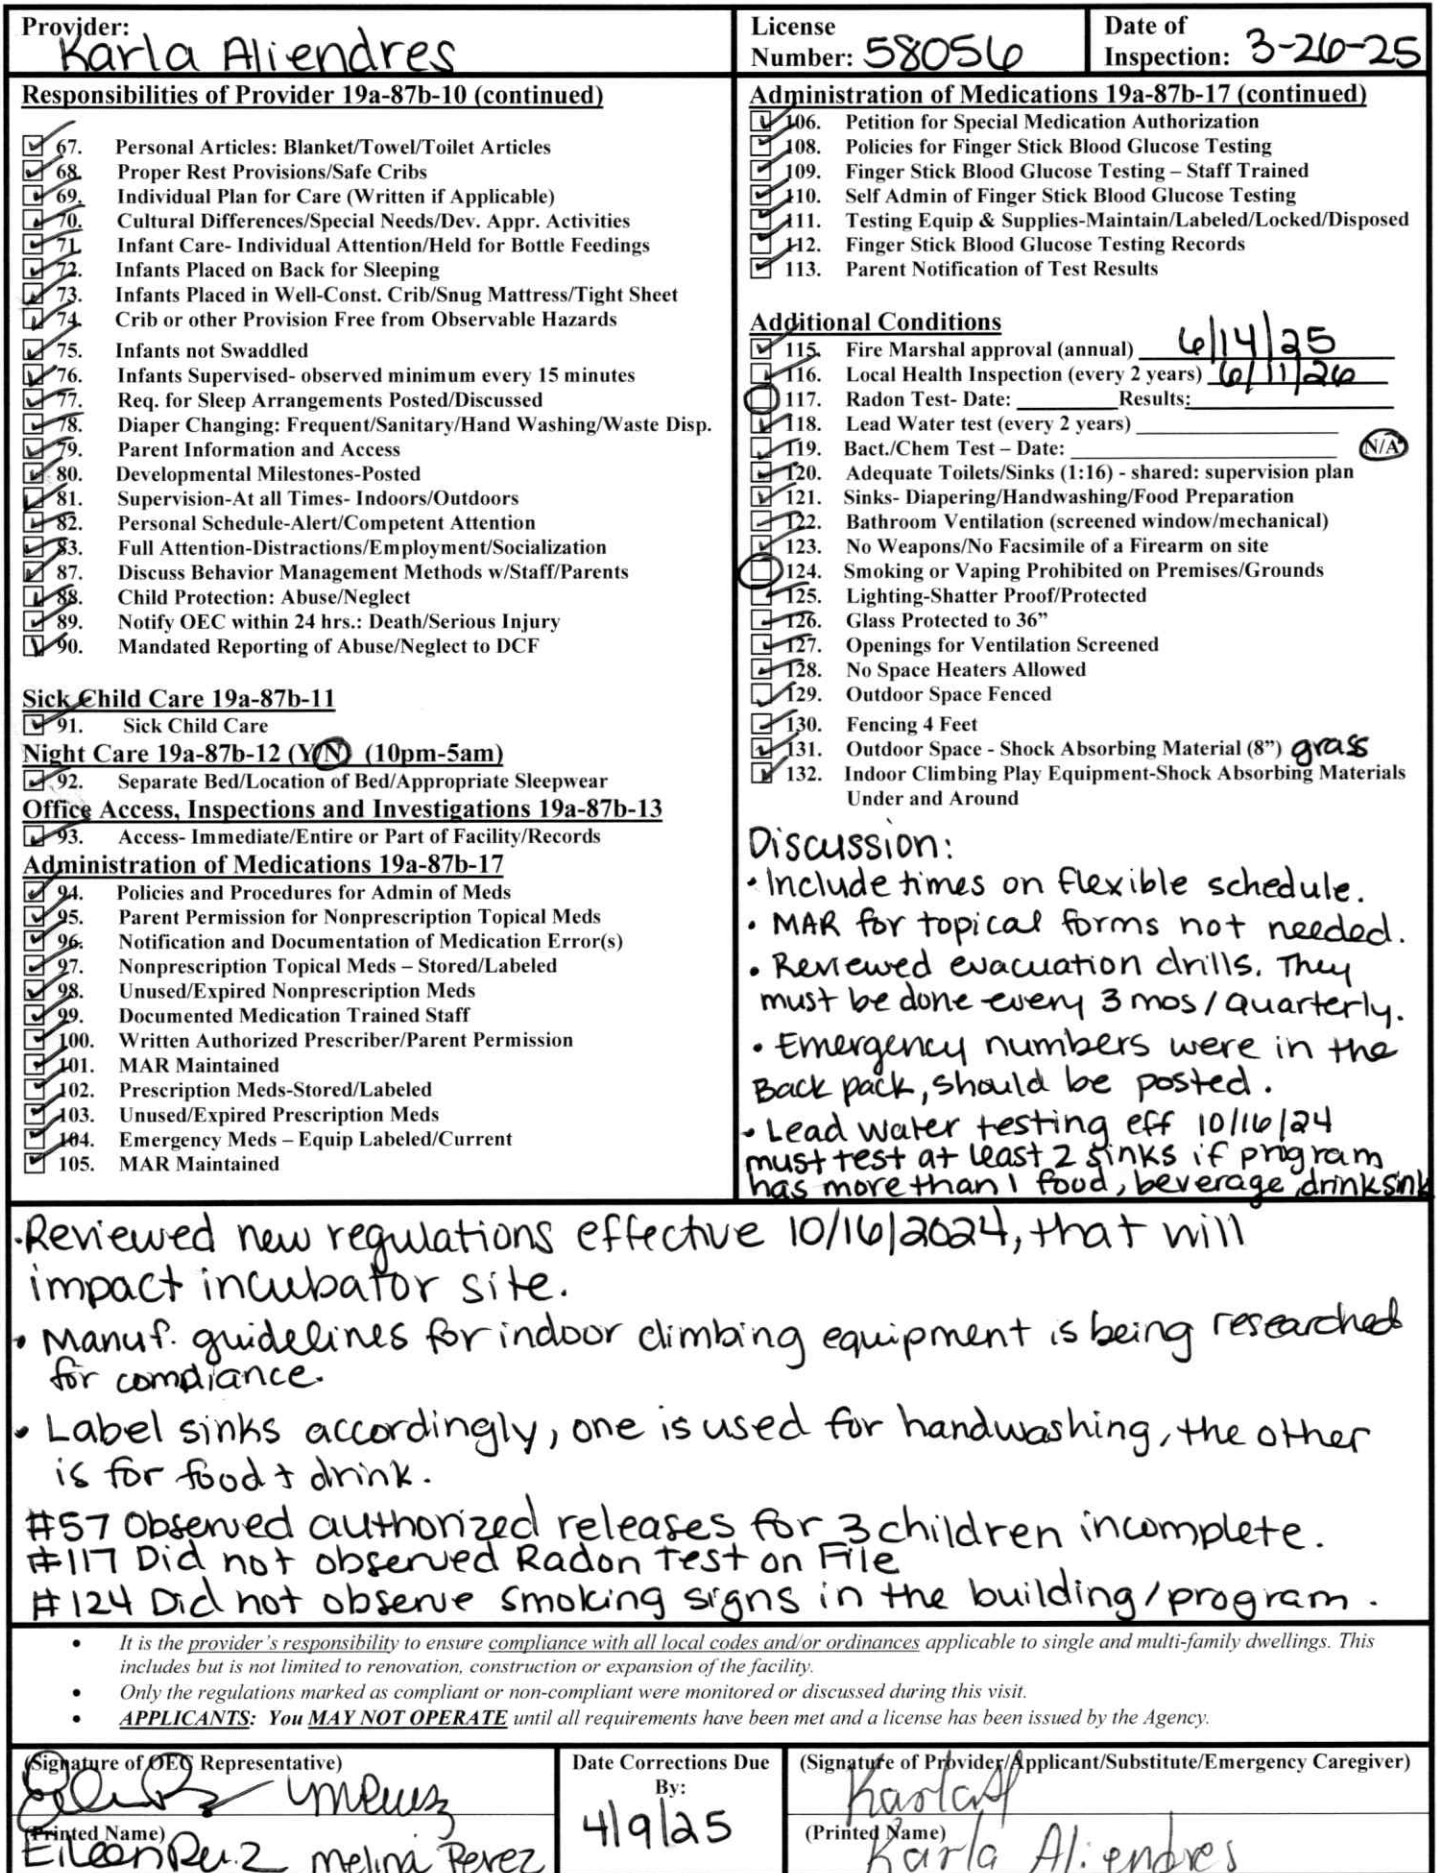 Provider: Karla Aliendres
License Number: 58056
Date of Inspection: 3-26-25
Responsibilities of Provider 19a-87b-10 (continued)
67. Personal Articles: Blanket/Towel/Toilet Articles
68. Proper Rest Provisions/Safe Cribs
69. Individual Plan for Care (Written if Applicable)
70. Cultural Differences/Special Needs/Dev. Appr. Activities
71. Infant Care- Individual Attention/Held for Bottle Feedings
72. Infants Placed on Back for Sleeping
73. Infants Placed in Well-Const. Crib/Snug Mattress/Tight Sheet
74. Crib or other Provision Free from Observable Hazards
75. Infants not Swaddled
76. Infants Supervised- observed minimum every 15 minutes
77. Req. for Sleep Arrangements Posted/Discussed
78. Diaper Changing: Frequent/Sanitary/Hand Washing/Waste Disp.
79. Parent Information and Access
80. Developmental Milestones-Posted
81. Supervision-At all Times- Indoors/Outdoors
82. Personal Schedule-Alert/Competent Attention
83. Full Attention-Distractions/Employment/Socialization
87. Discuss Behavior Management Methods w/Staff/Parents
88. Child Protection: Abuse/Neglect
89. Notify OEC within 24 hrs.: Death/Serious Injury
90. Mandated Reporting of Abuse/Neglect to DCF
Sick Child Care 19a-87b-11
91. Sick Child Care
Night Care 19a-87b-12 (Y/N) (10pm-5am)
92. Separate Bed/Location of Bed/Appropriate Sleepwear
Office Access, Inspections and Investigations 19a-87b-13
93. Access- Immediate/Entire or Part of Facility/Records
Administration of Medications 19a-87b-17
94. Policies and Procedures for Admin of Meds
95. Parent Permission for Nonprescription Topical Meds
96. Notification and Documentation of Medication Error(s)
97. Nonprescription Topical Meds – Stored/Labeled
98. Unused/Expired Nonprescription Meds
99. Documented Medication Trained Staff
100. Written Authorized Prescriber/Parent Permission
101. MAR Maintained
102. Prescription Meds-Stored/Labeled
103. Unused/Expired Prescription Meds
104. Emergency Meds – Equip Labeled/Current
105. MAR Maintained
Administration of Medications 19a-87b-17 (continued)
106. Petition for Special Medication Authorization
108. Policies for Finger Stick Blood Glucose Testing
109. Finger Stick Blood Glucose Testing – Staff Trained
110. Self Admin of Finger Stick Blood Glucose Testing
111. Testing Equip & Supplies-Maintain/Labeled/Locked/Disposed
112. Finger Stick Blood Glucose Testing Records
113. Parent Notification of Test Results
Additional Conditions
115. Fire Marshal approval (annual) 6/14/25
116. Local Health Inspection (every 2 years) 6/11/26
117. Radon Test- Date: Results:
118. Lead Water test (every 2 years)
119. Bact./Chem Test – Date: N/A
120. Adequate Toilets/Sinks (1:16) - shared: supervision plan
121. Sinks- Diapering/Handwashing/Food Preparation
122. Bathroom Ventilation (screened window/mechanical)
123. No Weapons/No Facsimile of a Firearm on site
124. Smoking or Vaping Prohibited on Premises/Grounds
125. Lighting-Shatter Proof/Protected
126. Glass Protected to 36”
127. Openings for Ventilation Screened
128. No Space Heaters Allowed
129. Outdoor Space Fenced
130. Fencing 4 Feet
131. Outdoor Space - Shock Absorbing Material (8”) grass
132. Indoor Climbing Play Equipment-Shock Absorbing Materials
Under and Around
Discussion:
• Include times on flexible schedule.
• MAR for topical forms not needed.
• Reviewed evacuation drills. They
must be done every 3 mos/quarterly.
• Emergency numbers were in the
Back pack, should be posted.
• Lead water testing eff 10/16/24
must test at least 2 sinks if program
has more than 1 food, beverage, drink sink
• Reviewed new regulations effective 10/16/2024, that will
impact incubator site.
• Manuf. guidelines for indoor climbing equipment is being researched
for compliance.
• Label sinks accordingly, one is used for handwashing, the other
is for food + drink.
#57 Observed authorized releases for 3 children incomplete.
#117 Did not observed Radon Test on File
#124 Did not observe smoking signs in the building/program.
• It is the provider’s responsibility to ensure compliance with all local codes and/or ordinances applicable to single and multi-family dwellings. This
includes but is not limited to renovation, construction or expansion of the facility.
• Only the regulations marked as compliant or non-compliant were monitored or discussed during this visit.
• APPLICANTS: You MAY NOT OPERATE until all requirements have been met and a license has been issued by the Agency.
(Signature of OEC Representative)
(Printed Name)
Eileen Ruiz Melina Perez
Date Corrections Due
By:
4/9/25
(Signature of Provider/Applicant/Substitute/Emergency Caregiver)
Karla A
(Printed Name)
Karla Aliendres